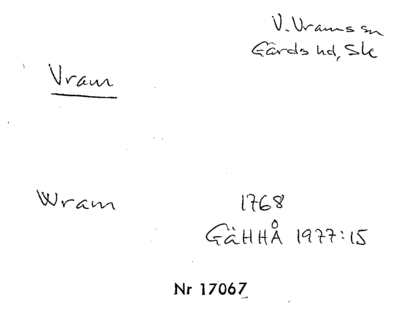 V. Vrams sn
Gärds hd, Sk
Vram
Wram 1768
GäHHÅ 1977:15
Nr 17067